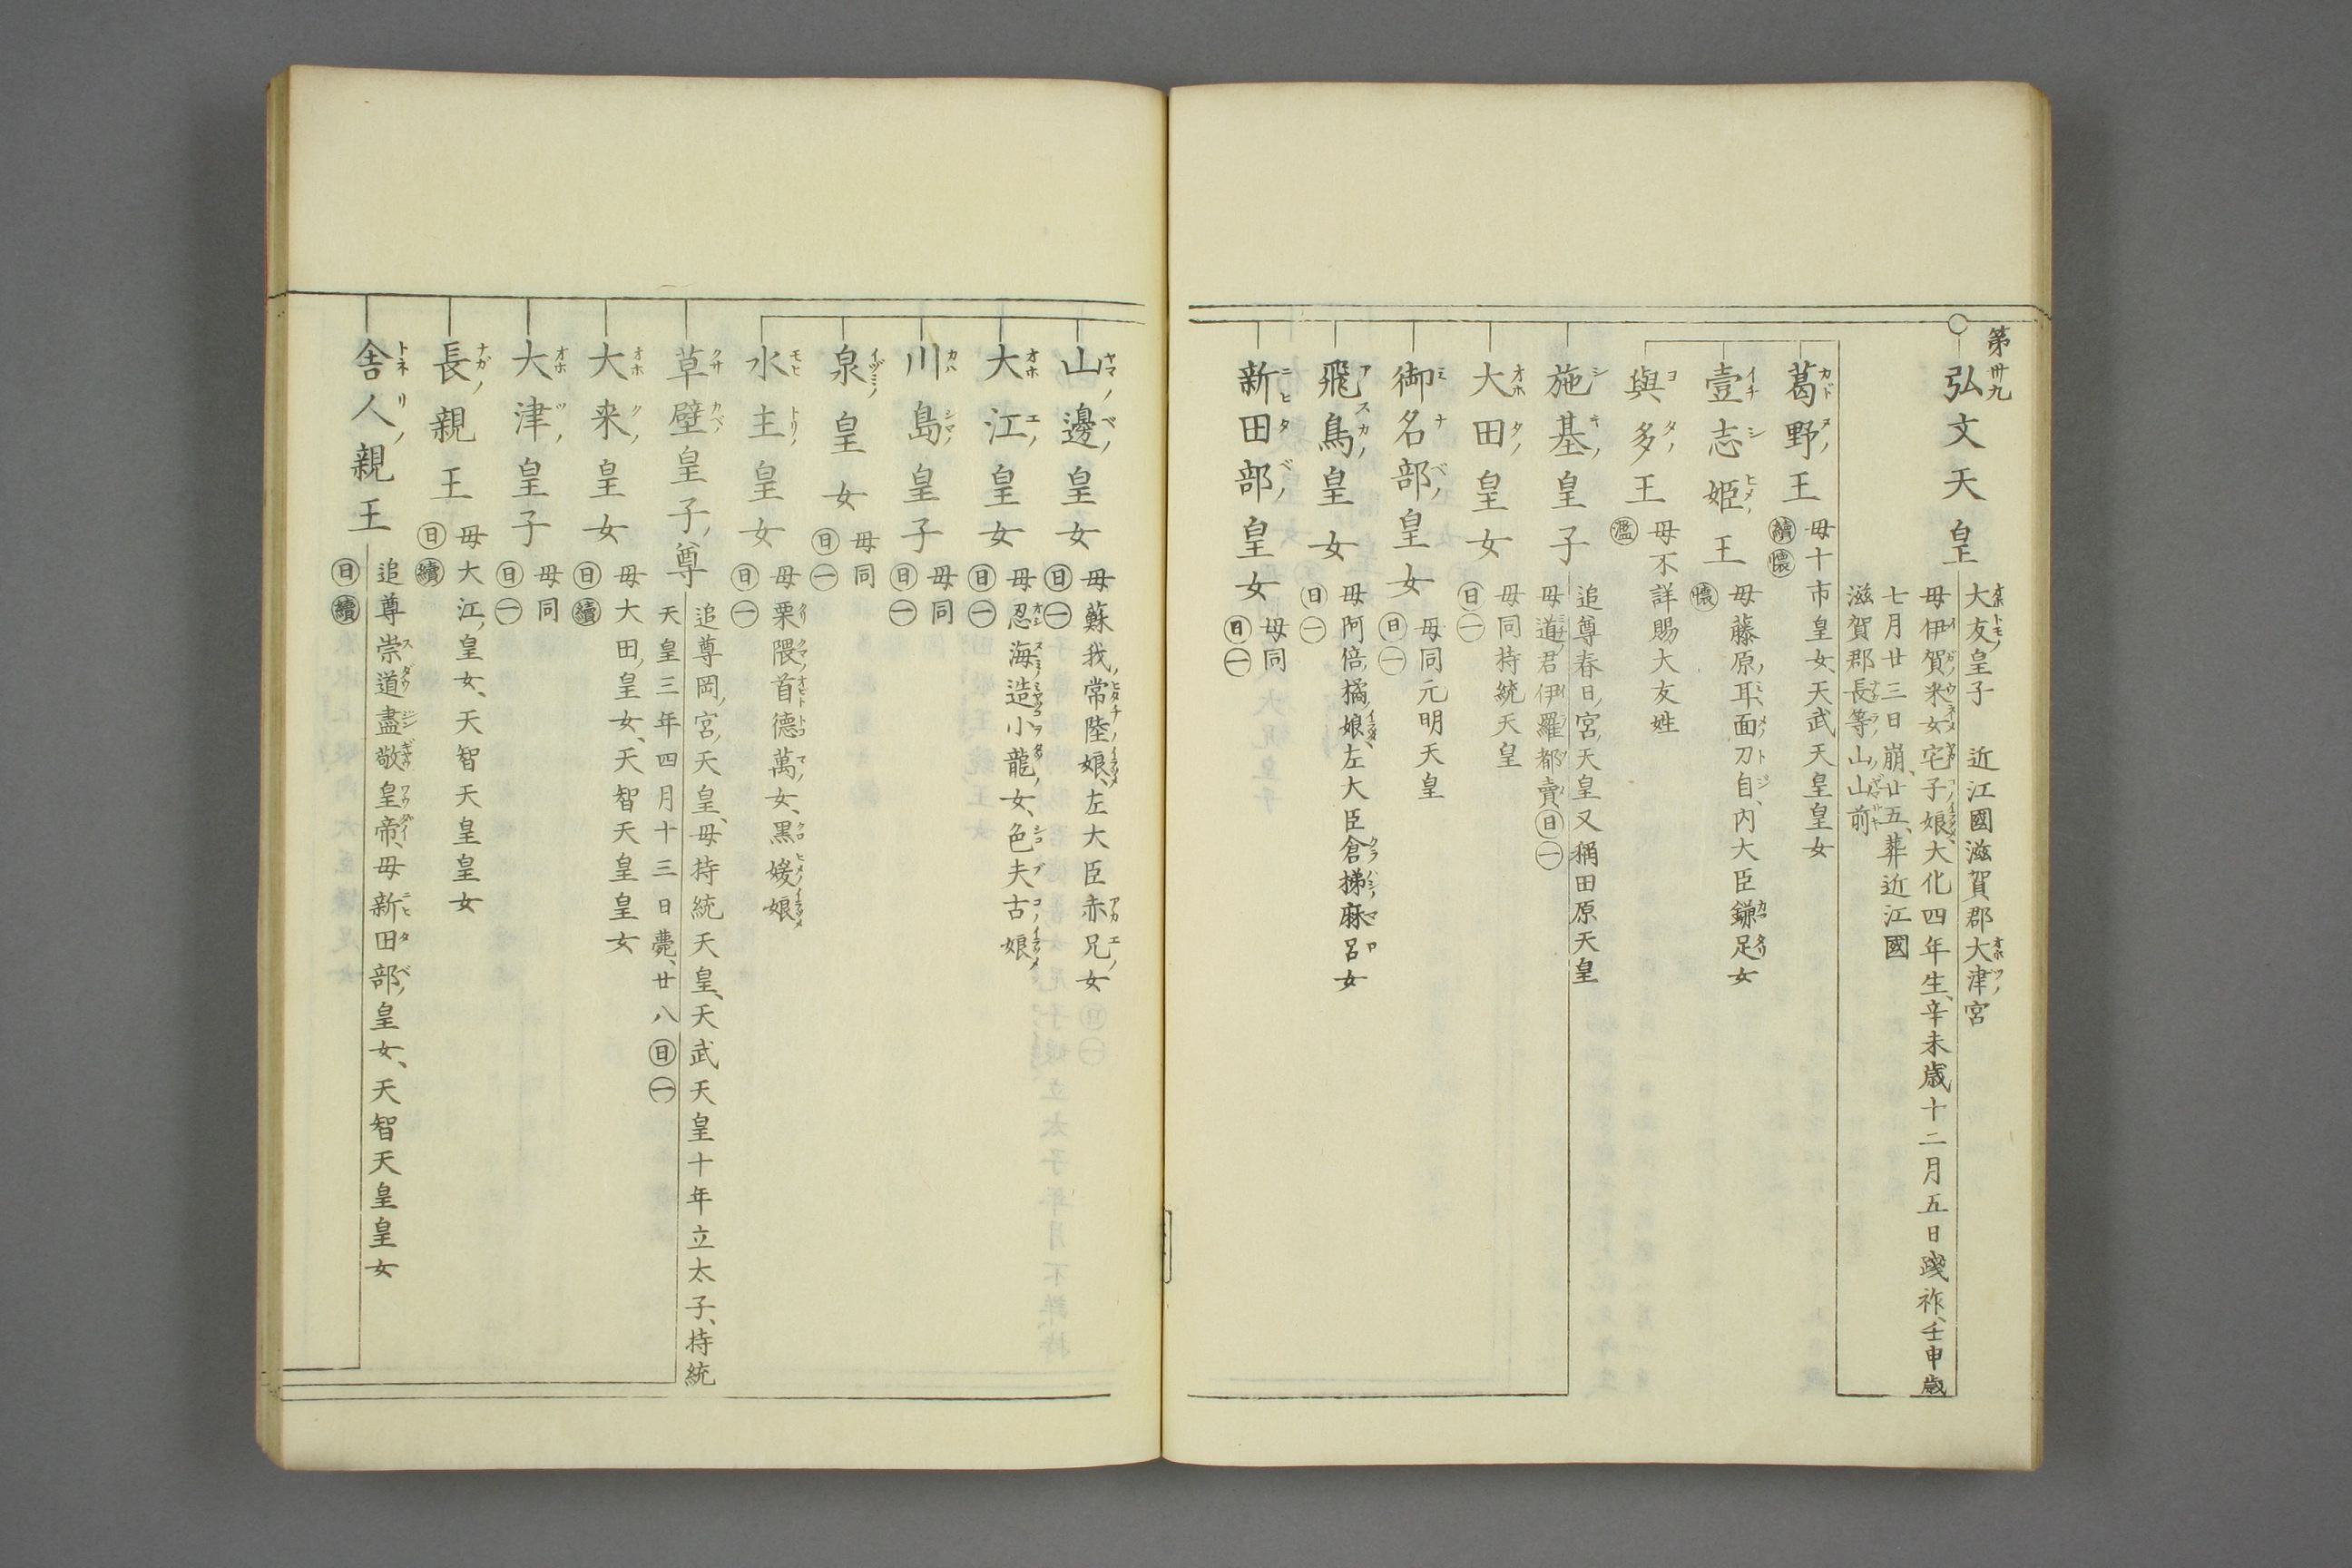 第卅九
弘文天皇
大友皇子 近江國滋賀郡大津宮
母伊賀采女宅子娘、大化四年生、辛未歳十二月五日踐祚、壬申歳
七月廿三日崩、廿五、葬近江國
滋賀郡長等山山前
葛野王 母十市皇女、天武天皇皇女
續 懐
壹志姫王 母藤原耳面刀自、内大臣鎌足女
懐
與多王 母不詳賜大友姓
濫
施基皇子 追尊春日宮天皇又稱田原天皇
母道君伊羅都賣 日 一
大田皇女 母同持統天皇
日 一
御名部皇女 母同元明天皇
日 一
飛鳥皇女 母阿倍橘娘、左大臣倉梯麻呂女
日 一
新田部皇女 母同
日 一
山邊皇女 母蘇我常陸娘、左大臣赤兄女
日 一
大江皇女 母忍海造小龍女、色夫古娘
日 一
川島皇子 母同
日 一
泉皇女 母同
日 一
水主皇女 母栗隈首德萬女、黒媛娘
日 一
草壁皇子尊 追尊岡宮天皇、母持統天皇、天武天皇十年立太子、持統
天皇三年四月十三日薨、廿八 日 一
大来皇女 母大田皇女、天智天皇皇女
日 續
大津皇子 母同
日 一
長親王 母大江皇女、天智天皇皇女
日 續
舎人親王 追尊崇道盡敬皇帝、母新田部皇女、天智天皇皇女
日 續